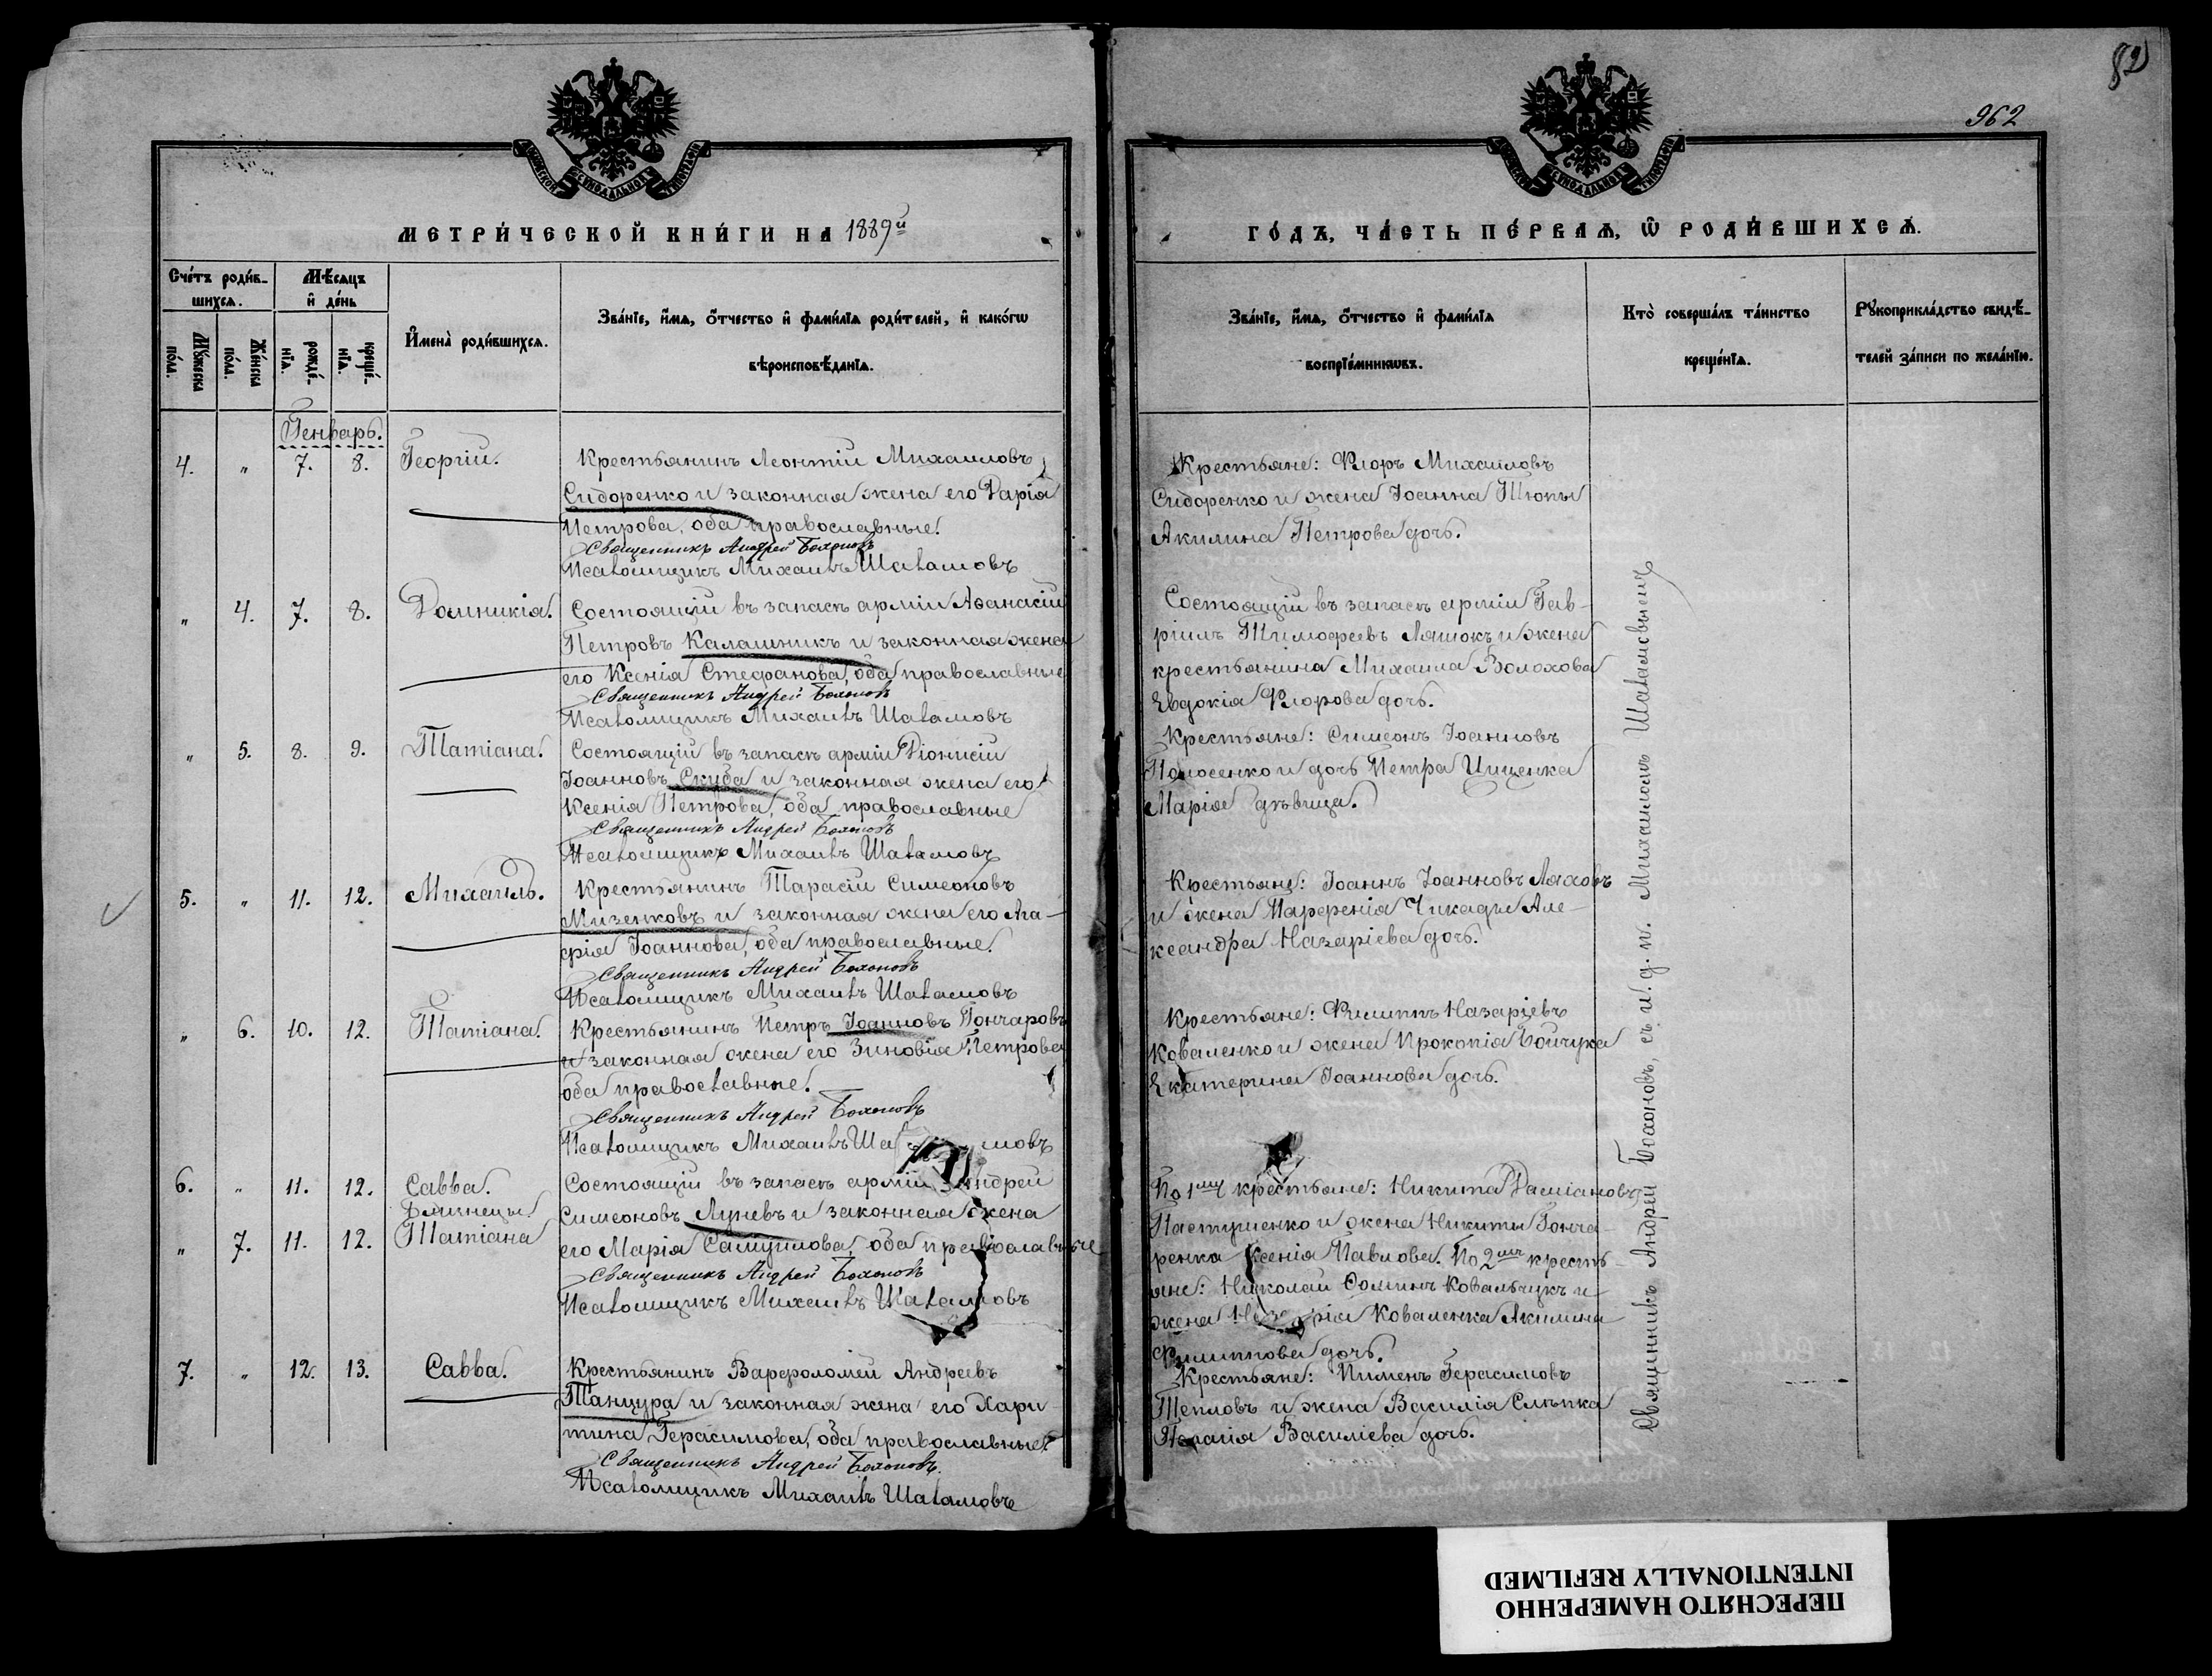 82
962
МОСКОВСКОЙ СѴНОДАЛЬНОЙ ТИПОГРАФІИ
МОСКОВСКОЙ СѴНОДАЛЬНОЙ ТИПОГРАФІИ
МЕТРИ́ЧЕСКОЙ КНИ́ГИ НА 1889й
ГО́ДЪ, ЧА́СТЬ ПЕ́РВАѦ, Ѡ РОДИ́ВШИХСѦ.
Сче́тъ роди́в-
шихсѧ.
Мѣ́сяцъ
и҆ де́нь
Мꙋ́жеска
по́ла.
Же́нска
по́ла.
рожде́-
нїѧ.
креще́-
нїѧ.
И҆мена̀ роди́вшихсѧ.
Зва́нїе, и҆́мѧ, ѻ҆́тчество и҆ фами́лїѧ роди́телей, и҆ како́гѡ
вѣроисповѣ́данїѧ.
Зва́нїе, и҆́мѧ, ѻ҆́тчество и҆ фами́лїѧ
воспрїе́мникѡвъ.
Кто̀ соверша́лъ та́инство
креще́нїѧ.
Рꙋкоприкла́дство свидѣ́-
телей за́писи по жела́нїю.
Генварь.
4. " 7. 8. Георгій.
Крестьянинъ Леонтій Михаиловъ
Сидоренко и законная жена его Дарія
Петрова, оба православные.
Священникъ Андрей Бохоновъ
Псаломщикъ Михаилъ Шаламовъ
Крестьяне: Флоръ Михаиловъ
Сидоренко и жена Іоанна Тюпы
Акилина Петрова дочь.
" 4. 7. 8. Домникія.
Состоящій въ запасѣ арміи Аѳанасій
Петровъ Калашникъ и законная жена
его Ксенія Стефанова, оба православные
Священникъ Андрей Бохоновъ
Псаломщикъ Михаилъ Шаламовъ
Состоящій въ запасѣ арміи Гав-
ріилъ Тимоѳеевъ Ляшокъ и жена
крестьянина Михаила Волохова
Евдокія Флорова дочь.
" 5. 8. 9. Татіана.
Состоящій въ запасѣ арміи Діонисій
Іоанновъ Скуба и законная жена его
Ксенія Петрова, оба православные
Священникъ Андрей Бохоновъ
Псаломщикъ Михаилъ Шаламовъ
Крестьяне: Симеонъ Іоанновъ
и дочь Петра
Марія дѣвица.
5. " 11. 12. Михаилъ.
Крестьянинъ Тарасій Симеоновъ
Мизенковъ и законная жена его Ага-
фія Іоаннова, оба православные.
Священникъ Андрей Бохоновъ
Псаломщикъ Михаилъ Шаламовъ
Крестьяне: Іоаннъ Іоанновъ Ляховъ
и жена Парфенія Чикады Але-
ксандра Назаріева дочь.
" 6. 10. 12. Татіана.
Крестьянинъ Петръ Іоанновъ Гончаровъ
и законная жена его Зиновія Петрова
оба православные.
Священникъ Андрей Бохоновъ
Псаломщикъ Михаилъ Шаламовъ
Крестьяне: Филиппъ Назаріевъ
Коваленко и жена Прокопія Бойчука
Екатерина Іоаннова дочь.
6. " 11. 12. Савва.
Близнецы
" 7. 11. 12. Татіана
Состоящій въ запасѣ арміи Андрей
Симеоновъ Луневъ и законная жена
его Марія Самуилова, оба православные
Священникъ Андрей Бохоновъ
Псаломщикъ Михаилъ Шаламовъ
По 1му крестьяне: Никита Даміановъ
Пастушенко и жена Никиты Гонча-
ренка Ксенія Павлова. По 2му кресть-
яне: Николай Ѳоминъ Ковальчукъ и
жена Назарія Коваленка Акилина
Филиппова дочь.
7. " 12. 13. Савва.
Крестьянинъ Варфоломей Андреевъ
Танцура и законная жена его Хари-
тина Герасимова, оба православные
Священникъ Андрей Бохоновъ.
Псаломщикъ Михаилъ Шаламовъ
Крестьяне: Пименъ Герасимовъ
Тепловъ и жена Василія Слѣпка
Пелагія Василіева дочь.
Священникъ Андрей Бохоновъ, съ и. д. п. Михаиломъ Шаламовымъ
ПЕРЕСНЯТО НАМЕРЕННО
INTENTIONALLY REFILMED